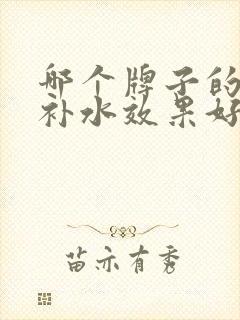 哪个牌子的
补水效果好
苗亦有秀